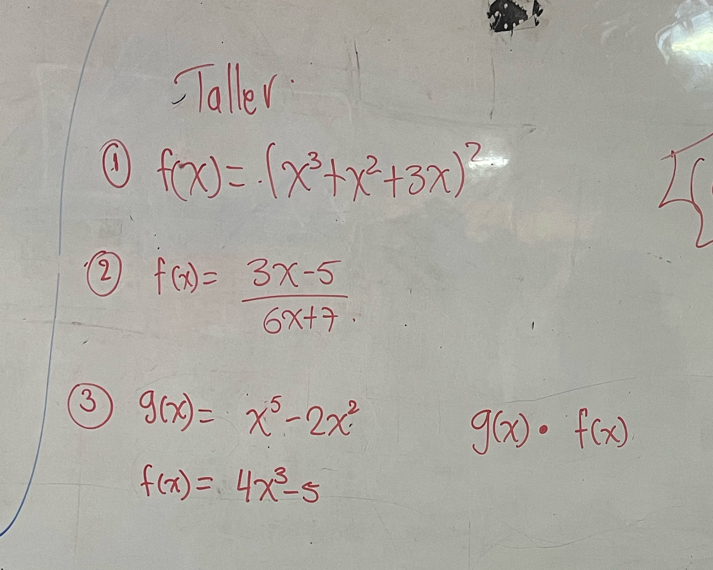 Taller
① f(x) = (x³+x²+3x)²
② f(x) = 3x-5
6x+7
③ g(x) = x⁵-2x²
g(x) • f(x)
f(x) = 4x³-5